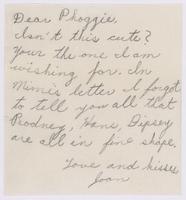 Dear Phoggie,
Isn't this cute?
Your the one I am
wishing for. In
Mimi's letter I forgot
to tell you all that
Rodney, Hans, Dipsey
are all in fine shape.
Love and kisses
Joan